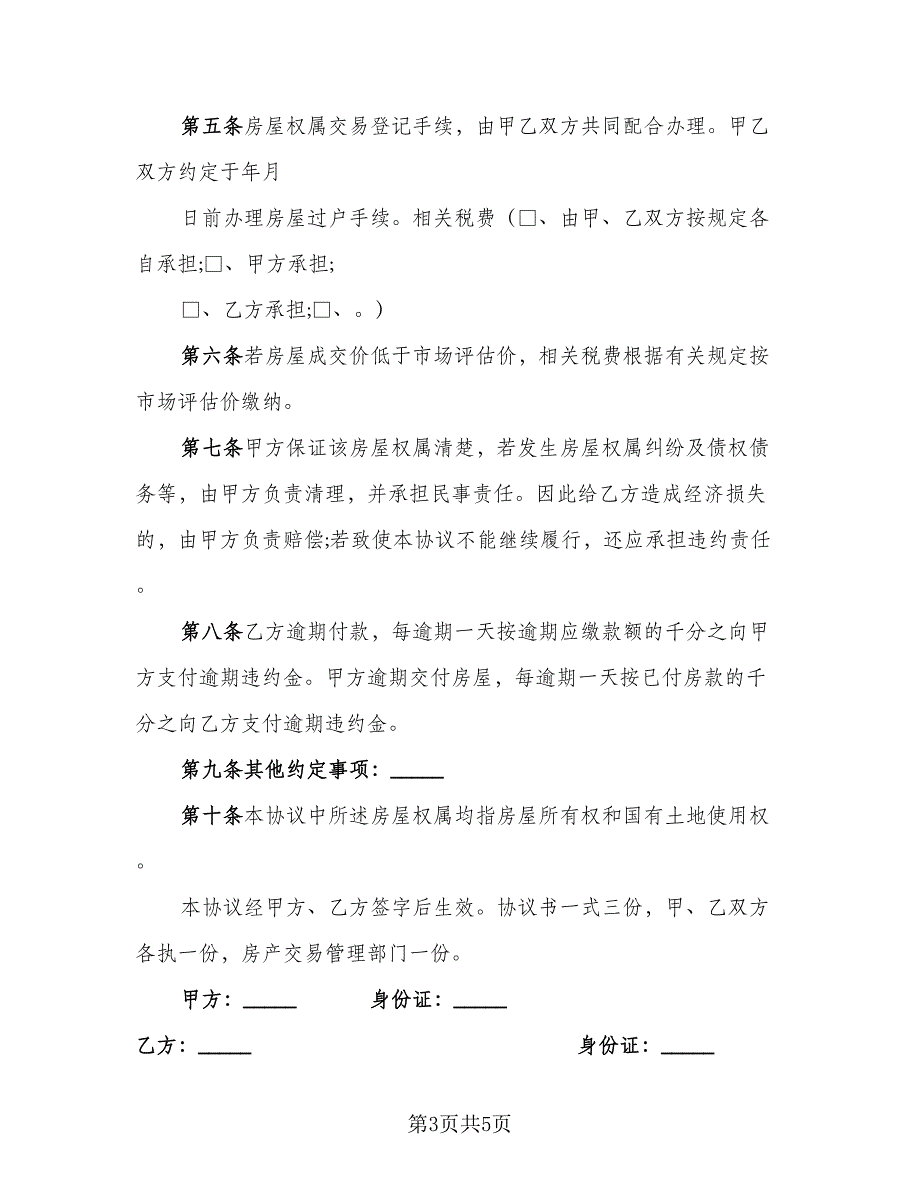 第五条房屋权属交易登记手续，由甲乙双方共同配合办理。甲乙
双方约定于年月
日前办理房屋过户手续。相关税费（□、由甲、乙双方按规定各
自承担;□、甲方承担;
□、乙方承担;□、。）
第六条若房屋成交价低于市场评估价，相关税费根据有关规定按
市场评估价缴纳。
第七条甲方保证该房屋权属清楚，若发生房屋权属纠纷及债权债
务等，由甲方负责清理，并承担民事责任。因此给乙方造成经济损失
的，由甲方负责赔偿;若致使本协议不能继续履行，还应承担违约责任
。
第八条乙方逾期付款，每逾期一天按逾期应缴款额的千分之向甲
方支付逾期违约金。甲方逾期交付房屋，每逾期一天按已付房款的千
分之向乙方支付逾期违约金。
第九条其他约定事项：_____
第十条本协议中所述房屋权属均指房屋所有权和国有土地使用权
。
本协议经甲方、乙方签字后生效。协议书一式三份，甲、乙双方
各执一份，房产交易管理部门一份。
甲方：_____ 身份证：_____
乙方：_____ 身份证：_____
第3页共5页